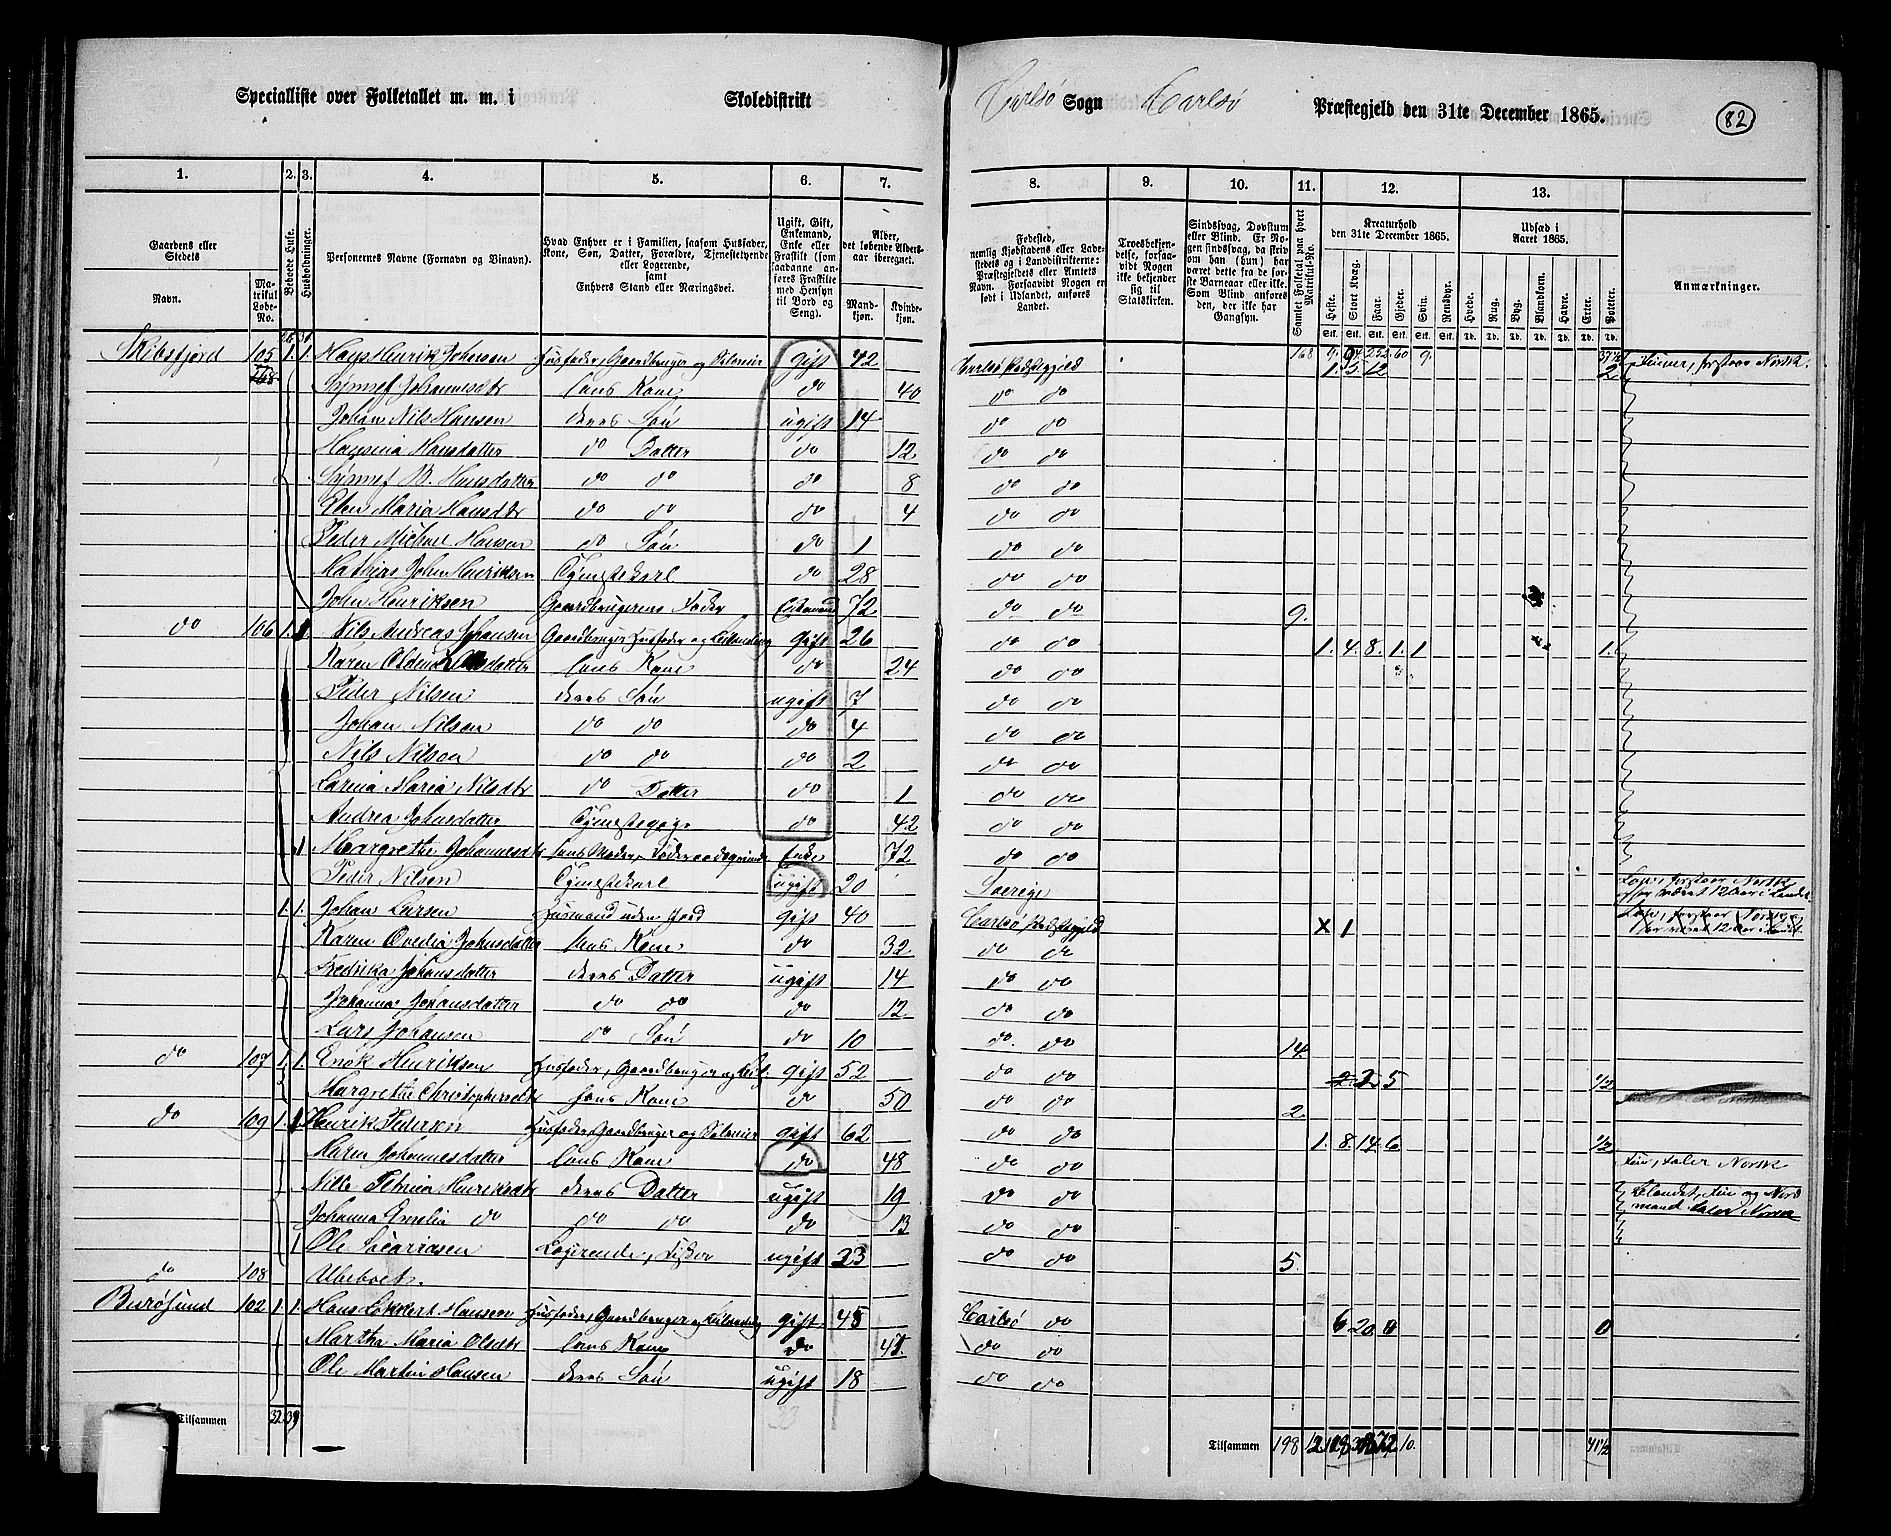 Specialliste over Folketallet m. m. i Skoledistrikt Carlsö Sogn Carlsö Præstegjeld den 31te December 1865. 82
1. 2. 3. 4. 5. 6. 7. 8. 9. 10. 11. 12. 13.
Gaardens eller Stedets
Navn.
Matrikul Løbe-No.
Beboede Huse.
Husholdninger.
Personernes Navne (Fornavn og Binavn).
Hvad Enhver er i Familien, saasom Husfader, Kone, Søn, Datter, Forældre, Tjenestetyende eller Logerende, samt Enhvers Stand eller Næringsvei.
Ugift, Gift, Enkemand, Enke eller Fraskilt (som saadanne anføres Fraskilte med Hensyn til Bord og Seng).
Alder, det løbende Aldersaar iberegnet.
Mandkjøn. Kvindekjøn.
Fødested, nemlig Kjøbstadens eller Ladestedets og i Landdistrikterne: Præstegjeldets eller Amtets Navn. Forsaavidt Nogen er født i Udlandet, anføres Landet.
Troesbekjendelse, forsaavidt Nogen ikke bekjender sig til Statskirken.
Sindssvag, Døvstum eller Blind. Er Nogen sindssvag, da skriv om han (hun) har været dette fra de første Barneaar eller ikke. Som Blind anføres den, der ikke har Gangsyn.
Samlet Folketal paa hvert Matrikul-No.
Kreaturhold den 31te December 1865.
Heste. Stort Kvæg. Faar. Gjeder. Svin. Rensdyr.
Udsæd i Aaret 1865.
Hvede. Rug. Byg. Blandkorn. Havre. Erter. Poteter.
Anmærkninger.
Skibsfjord 105 1. 1. Hans Henrik Johnsen Husfader, Gaardbruger og gift 42 Carlsö Præstegjeld 168 9. 94 252 60 9. 37½
768 Synnef Johannesdtr hans Kone do 40 do do 1. 5. 12 2
Johan Nils Hansen deres Søn ugift 14 do do
Hansina Hansdatter do Datter do 12 do do
Synnef B. Hansdatter do do do 8 do do
Elen Maria Hansdtr do do do 4 do do
Peder Michael Hansen do Søn do 1 do do
Mathias John Henriksen Tjenestekarl do 28 do do
John Henriksen Gaardbrugerens Fader Enkemand 72 do do 9.
do 106 1. 1 Nils Andreas Johansen Gaardbruger Husfader og gift 26 do do 1. 4. 8. 1. 1 1.
Karen hans Kone do 24 do do
Peder Nilsen deres Søn ugift 7 do do
Johan Nilsen do do do 4 do do
Nils Nilsen do do do 2 do do
Larina Maria Nilsdtr do Datter do 1 do do
Andrea Johnsdatter Tjenestepige do 42 do do
1 Margrethe Johannesdtr hans Moder, Føderaadskvinde Enke 72 do do
Peder Nilsen Tjenestekarl ugift 20 Sverige Lap, forstaar Norsk har været 12 Aar i Landet
1. 1. Johan Larsen Husmand uden Jord gift 40 Carlsö Præstegjeld X 1 Lap, forstaar Norsk har været 12 Aar i Landet
Karen Ovedia Johnsdatter hans Kone do 32 do do
Fredrika Johansdatter deres Datter ugift 14 do do
Johanna Johansdatter do do do 12 do do
Lars Johansen do Søn do 10 do do 14.
do 107 1. 1. Enok Henriksen Husfader, Gaardbruger og gift 52 do do 2 5 ½
Margrethe Christophersdtr hans Kone do 50 do do 2.
do 109 1. 1 Henrik Pedersen Husfader, Gaardbruger og gift 62 do do 1. 8. 14 6 ½
Maren Johannesdatter hans Kone do 48 do do Fin, taler Norsk
Nille Petrina Henriksdtr deres Datter ugift 19 do do Blandet, Fin og Nordmand taler Norsk
Johanna Amalia do do do do 13 do do
1 Ole Zacariasen Logerende, Fisker ugift 23 do do 5.
do 108 Ubeboet.
Burösund 102 1. 1. Hans Hansen Husfader, Gaardbruger og gift 45 Carlsö do 6 20 0
Martha Maria Olsdtr hans Kone do 45. do do
Ole Martin Hansen deres Søn ugift 18 do do
Tilsammen 32 39 Tilsammen 198 10. 41½